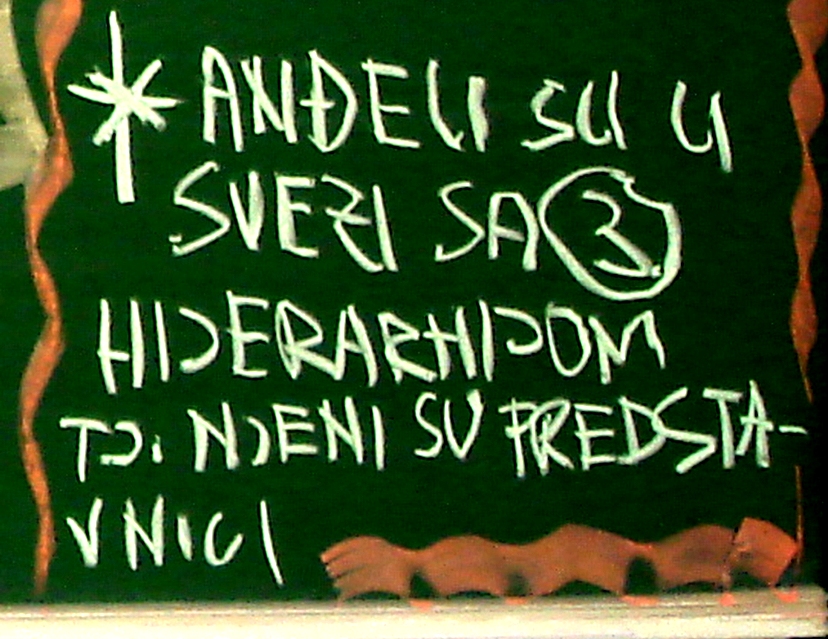 * ANĐELI SU U
SVEZI SA 3
HIJERARHIJOM
TJ. NJENI SU PREDSTA-
VNICI